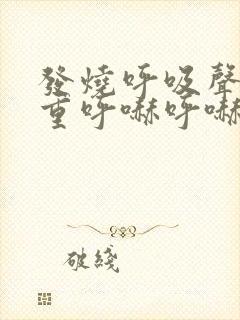 發燒呼吸聲
重呼嚇呼嚇
破綫